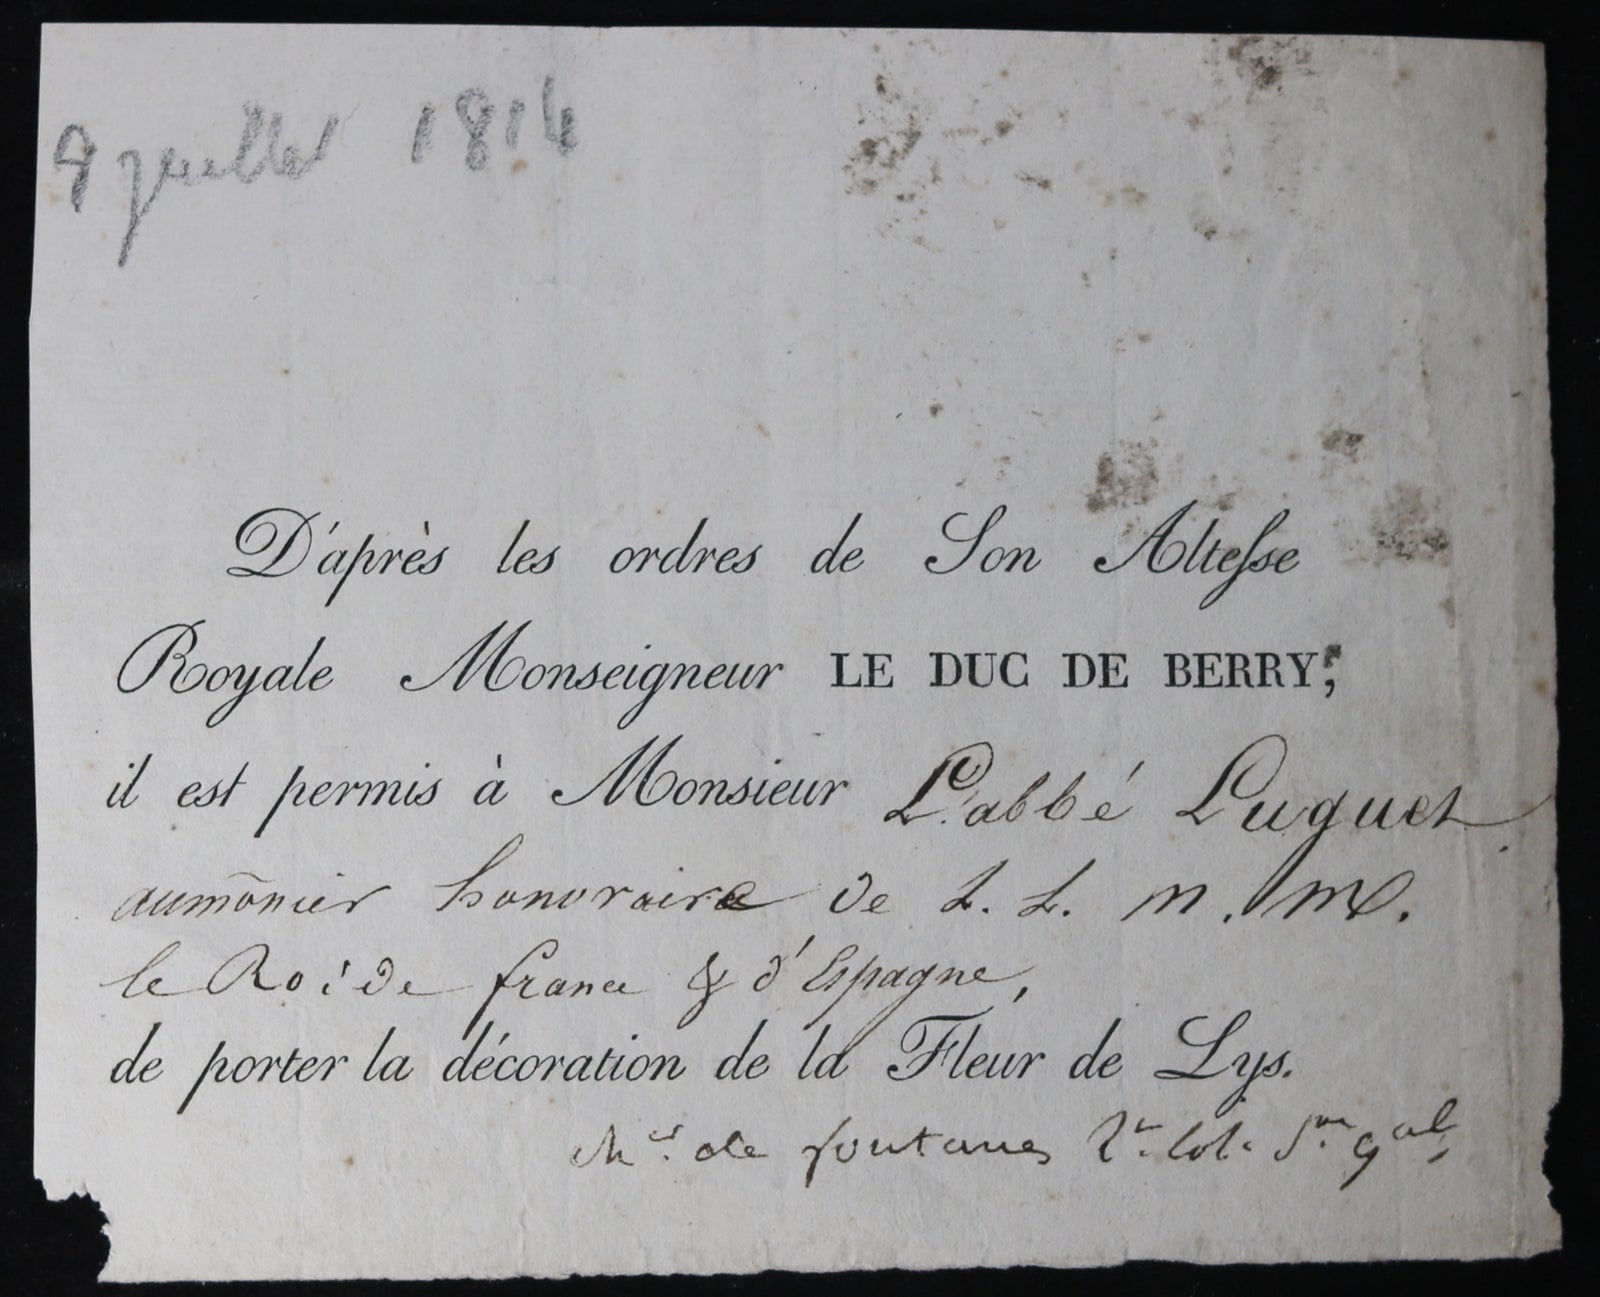 9 juillet 1814
D'après les ordres de Son Altesse
Royale Monseigneur LE DUC DE BERRY,
il est permis à Monsieur L'abbé Luguet
aumônier honoraire de L. L. M. M.
le Roi de france & d'Espagne,
de porter la décoration de la Fleur de Lys.
de fontanes